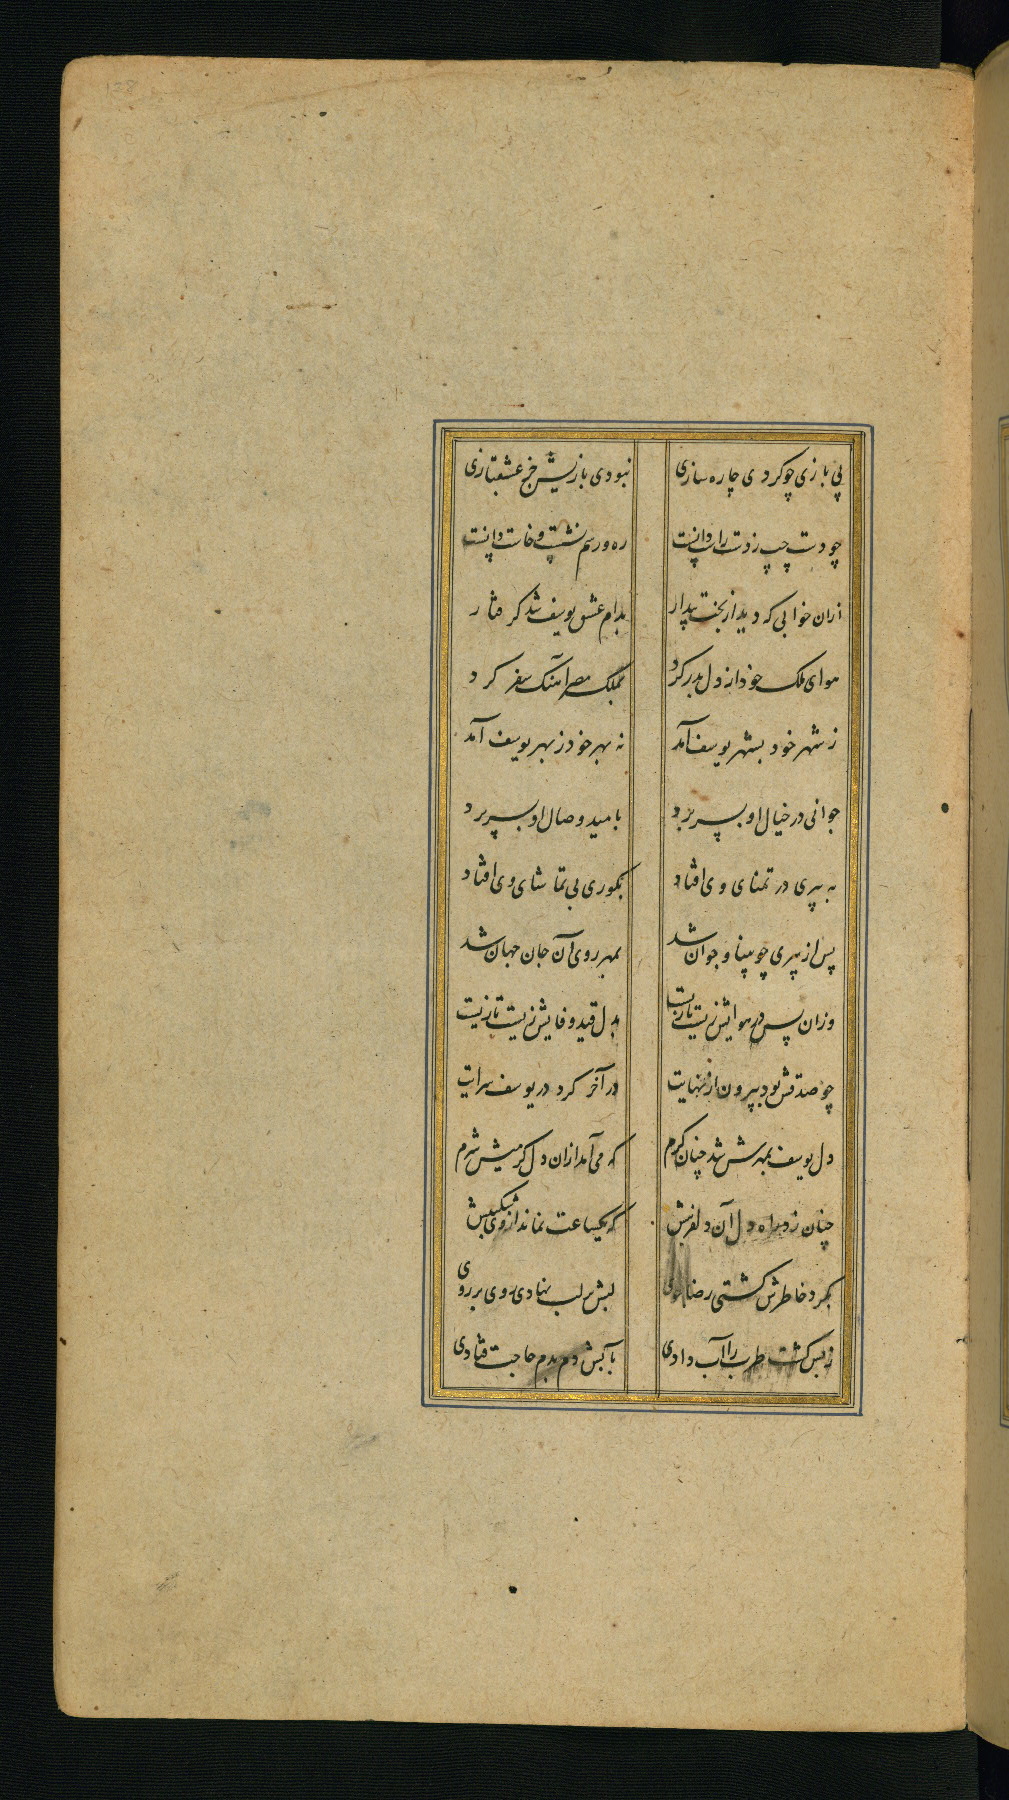 128
پی بازی چو کردی چاره سازی نبودی بازیش جز عشقبازی
چو دست چپ ز دست راست دانست ره و رسم نشست و خاست دانست
ازان خوابی که دید از بخت بیدار بدام عشق یوسف شد گرفتار
هوای ملک خود از دل بدر کرد بملک مصر آهنگ سفر کرد
ز شهر خود بشهر یوسف آمد نه بهر خود ز بهر یوسف آمد
جوانی در خیال او بسر برد بامید وصال او بسر برد
به پیری در تمنای وی افتاد بکوری بی تماشای وی افتاد
پس از پیری چو بینا و جوان شد بمهر روی آن جان جهان شد
وزان پس در هوایش زیست تا زیست بدل قید وفایش زیست تا زیست
چو صدقش بود بیرون از نهایت در آخر کرد در یوسف سرایت
دل یوسف بمهرش شد چنان گرم که می آمد ازان دل گرمیش شرم
چنان زد راه دل آن دلفریبش که یکساعت نماند از وی شکیبش
بگرد خاطرش گشتی رضا جوی لبش بر لب نهادی روی بر روی
ز بس کشت طرب را آب دادی بآبش دم بدم حاجت فتادی